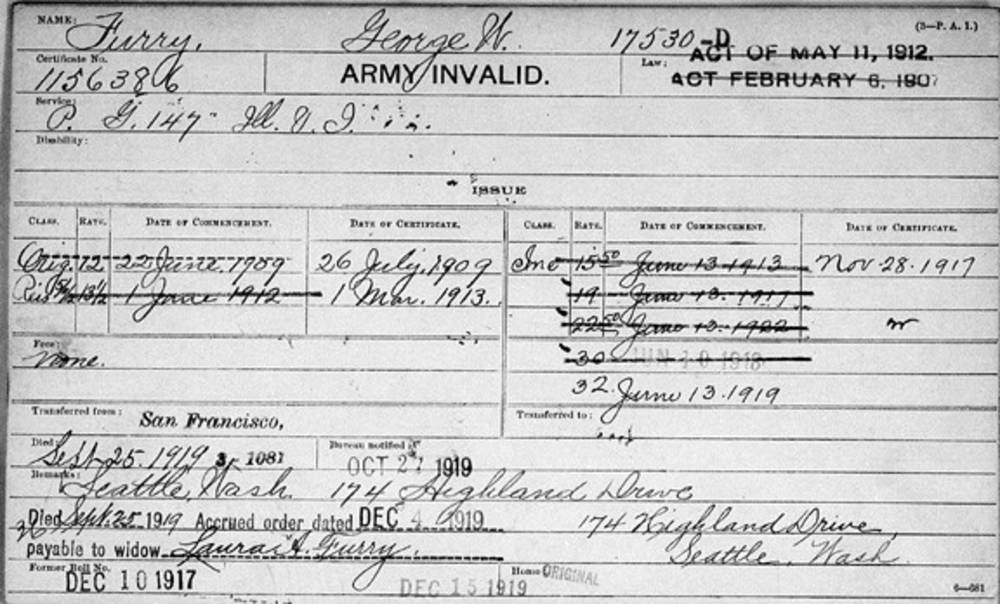 (3—P. A. I.)
NAME: Furry, George W. 17530-D ACT OF MAY 11, 1912.
Certificate No. 1156386 ARMY INVALID. Law: ACT FEBRUARY 6, 1907
Service: P. G. 147 Ill. V. I.
Disability:
ISSUE
CLASS. RATE. DATE OF COMMENCEMENT. DATE OF CERTIFICATE. CLASS. RATE. DATE OF COMMENCEMENT. DATE OF CERTIFICATE.
Orig. 12 22 June. 1909 26 July, 1909 Inc 15 50 June 13 1913 Nov 28. 1917
13 1/2 1 June 1912 1 Mar. 1913. 19 June 13. 1917
22 50 June 13. 1922
Fees: None. 30 JUN 10 1918
32. June 13. 1919
Transferred from: San Francisco, Transferred to:
Died: Sept 25. 1919 3, 1081 Bureau notified OCT 27 1919
Remarks: Seattle, Wash. 174 Highland Drive
Died Sept. 25 1919 Accrued order dated DEC 4 1919 174 Highland Drive,
payable to widow Laura A. Furry. Seattle, Wash
Former Roll No. DEC 10 1917 DEC 15 1919 Home ORIGINAL
6—681